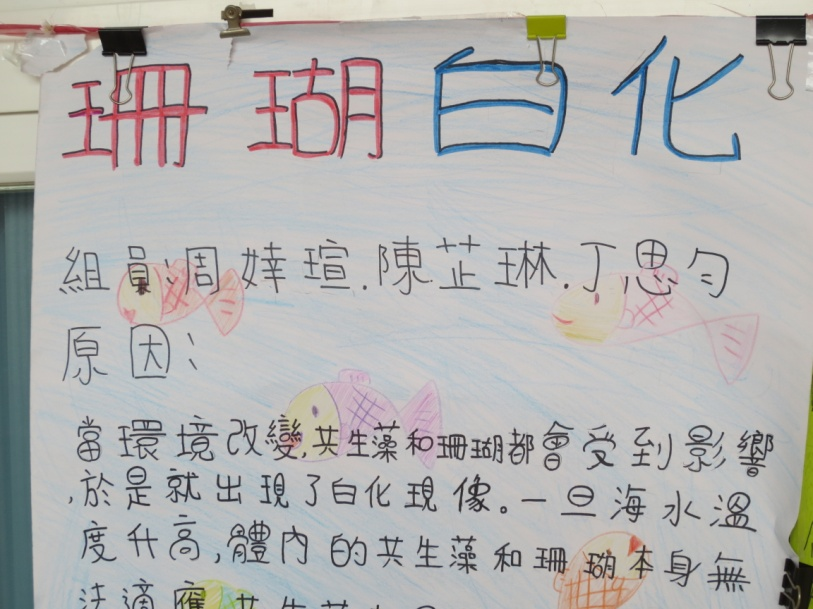 珊瑚白化
組員:周婞瑄.陳芷琳.丁思勻
原因:
當環境改變,共生藻和珊瑚都會受到影響
,於是就出現了白化現像。一旦海水溫
度升高,體內的共生藻和珊瑚本身無
法適應